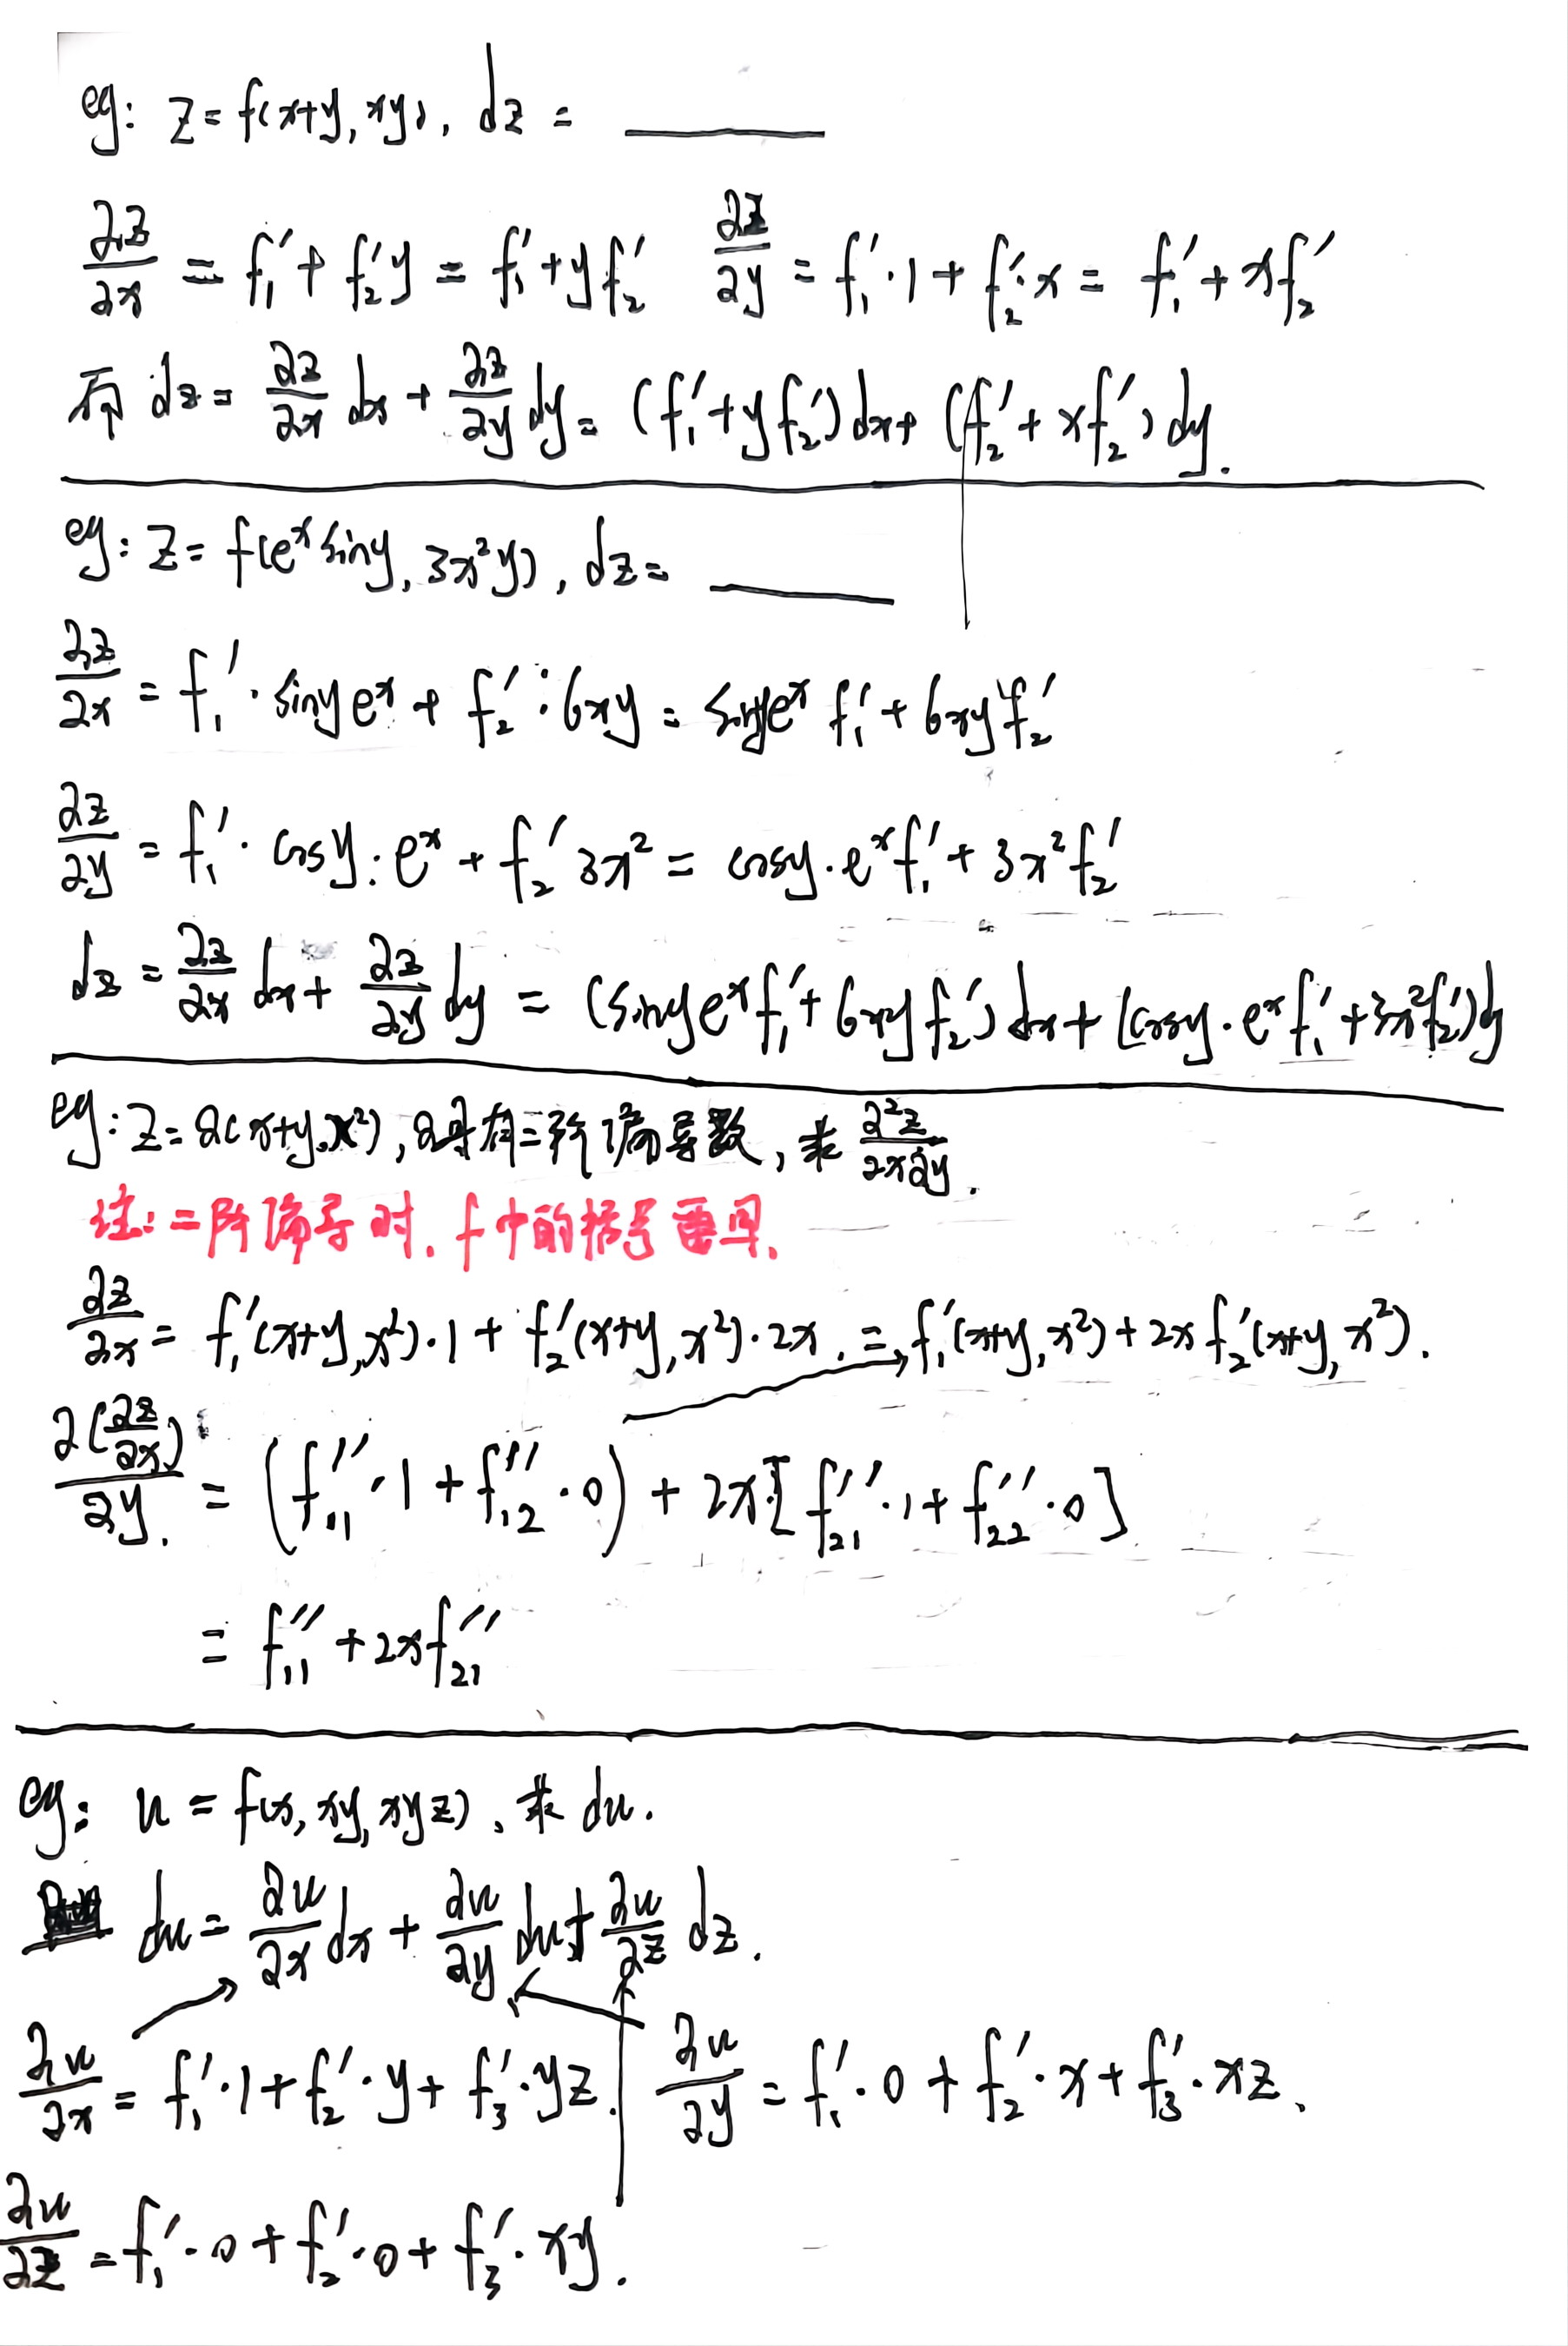 eg: z = f(x+y, xy), dz = ____
∂z/∂x = f₁′ + f₂′y = f₁′ + yf₂′  ∂z/∂y = f₁′·1 + f₂′·x = f₁′ + xf₂′
而 dz = ∂z/∂x dx + ∂z/∂y dy = (f₁′ + yf₂′)dx + (f₂′ + xf₂′)dy.
eg: z = f(eˣ siny, 3x²y), dz = ____
∂z/∂x = f₁′·siny eˣ + f₂′·6xy = siny eˣ f₁′ + 6xy f₂′
∂z/∂y = f₁′·cosy·eˣ + f₂′ 3x² = cosy·eˣ f₁′ + 3x² f₂′
dz = ∂z/∂x dx + ∂z/∂y dy = (siny eˣ f₁′ + 6xy f₂′)dx + (cosy·eˣ f₁′ + 3x² f₂′)dy
eg: z = (x+y, x²), 有二阶偏导数, 求 ∂²z/∂x∂y.
注: 二阶偏导时, f中的括号要写.
∂z/∂x = f₁′(x+y, x²)·1 + f₂′(x+y, x²)·2x = f₁′(x+y, x²) + 2x f₂′(x+y, x²).
∂(∂z/∂x)/∂y = (f₁₁″·1 + f₁₂″·0) + 2x·[f₂₁″·1 + f₂₂″·0]
= f₁₁″ + 2xf₂₁″
eg: u = f(x, xy, xyz), 求 du.
du = ∂u/∂x dx + ∂u/∂y du + ∂u/∂z dz.
∂u/∂x = f₁′·1 + f₂′·y + f₃′·yz.  ∂u/∂y = f₁′·0 + f₂′·x + f₃′·xz.
∂u/∂z = f₁′·0 + f₂′·0 + f₃′·xy.